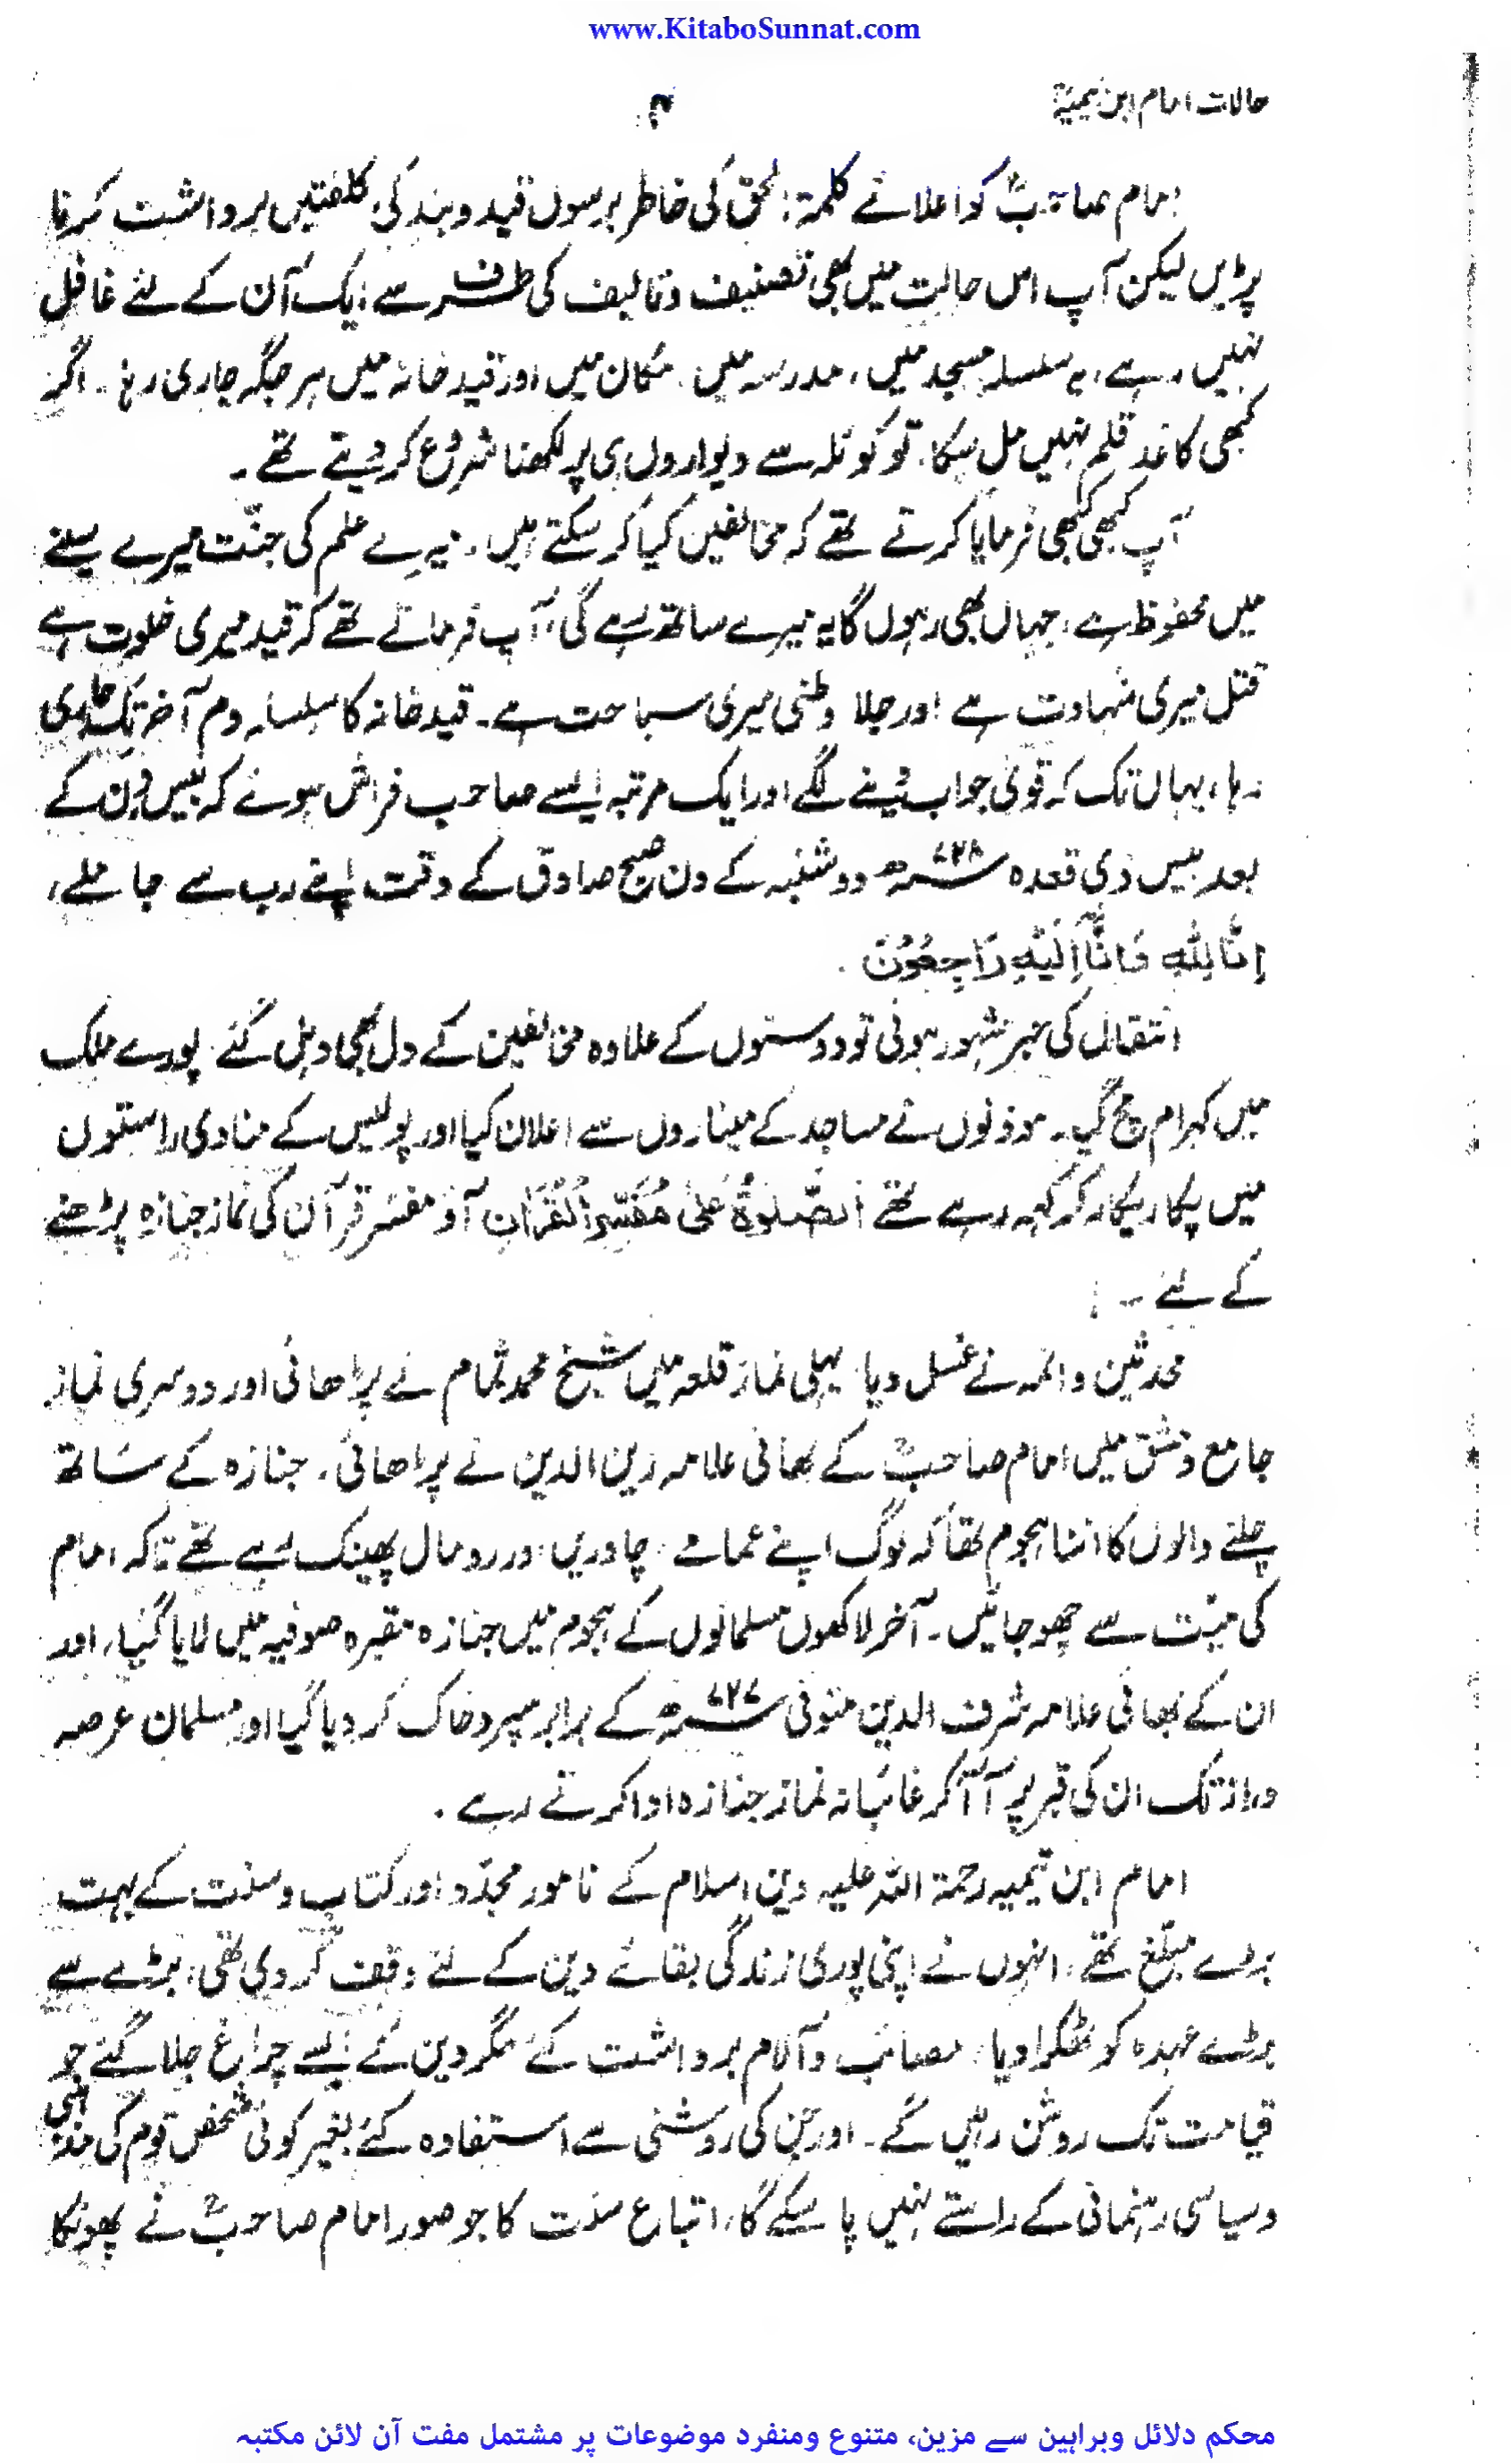 www.KitaboSunnat.com
حالات امام ابن تیمیہؒ
۴
امام صاحبؒ کو اعلائے کلمۃ الحق کی خاطر برسوں قید و بند کی کلفتیں برداشت کرنا
پڑیں لیکن آپ اس حالت میں بھی تصنیف و تالیف کی طرف سے ایک آن کے لئے غافل
نہیں رہے، یہ سلسلہ مسجد میں، مدرسہ میں، مکان میں اور قید خانہ میں ہر جگہ جاری رہا۔ اگر
کبھی کاغذ قلم نہیں مل سکا، تو کوئلہ سے دیواروں ہی پر لکھنا شروع کر دیتے تھے۔
آپ کبھی کبھی فرمایا کرتے تھے کہ مخالفین کیا کر سکتے ہیں۔ میرے علم کی جنّت میرے سینے
میں محفوظ ہے، جہاں بھی رہوں گا یہ میرے ساتھ رہے گی، آپ فرماتے تھے کہ قید میری خلوت ہے
قتل میری شہادت ہے اور جلا وطنی میری سیاحت ہے۔ قید خانہ کا سلسلہ دم آخر تک جاری
رہا، یہاں تک کہ قویٰ جواب دینے لگے اور ایک مرتبہ ایسے صاحب فراش ہوئے کہ بیس دن کے
بعد بیس ذی قعدہ ۷۲۸ھ دوشنبہ کے دن صبح صادق کے وقت اپنے رب سے جا ملے،
اِنَّا لِلّٰہِ وَاِنَّا اِلَیْہِ رَاجِعُوْنَ ۔
انتقال کی خبر مشہور ہوئی تو دوستوں کے علاوہ مخالفین کے دل بھی دہل گئے، پورے ملک
میں کہرام مچ گیا۔ موذنوں نے مساجد کے میناروں سے اعلان کیا اور پولیس کے منادی راستوں
میں پکار پکار کر کہہ رہے تھے اَلصَّلوٰۃُ عَلیٰ مُفَسِّرِ الْقُرْاٰنِ آؤ مفسّر قرآن کی نماز جنازہ پڑھنے
کے لئے ۔
محدثین و ائمہ نے غسل دیا، پہلی نماز قلعہ میں شیخ محمد تمام نے پڑھائی اور دوسری نماز
جامع دمشق میں امام صاحبؒ کے بھائی علامہ زین الدین نے پڑھائی۔ جنازہ کے ساتھ
چلنے والوں کا اتنا ہجوم تھا کہ لوگ اپنے عمامے، چادریں اور رومال پھینک رہے تھے تاکہ امام
کی میّت سے چھو جائیں۔ آخر لاکھوں مسلمانوں کے ہجوم میں جنازہ مقبرہ صوفیہ میں لایا گیا، اور
ان کے بھائی علامہ شرف الدین متوفی ۷۲۷ھ کے برابر سپرد خاک کر دیا گیا اور مسلمان عرصہ
دراز تک ان کی قبر پر آ آ کر غائبانہ نماز جنازہ ادا کرتے رہے ۔
امام ابن تیمیہ رحمۃ اللہ علیہ دین اسلام کے نامور مجدّد اور کتاب و سنت کے بہت
بڑے مبلّغ تھے، انہوں نے اپنی پوری زندگی بقائے دین کے لئے وقف کر دی تھی، بڑے سے
بڑے عہدہ کو ٹھکرا دیا، مصائب و آلام برداشت کئے مگر دین کے ایسے چراغ جلا گئے جو
قیامت تک روشن رہیں گے۔ اور جن کی روشنی سے استفادہ کئے بغیر کوئی شخص قوم کی مذہبی
و سیاسی رہنمائی کے راستے نہیں پا سکے گا، اتباع سنت کا جو صور امام صاحبؒ نے پھونکا
محکم دلائل وبراہین سے مزین، متنوع ومنفرد موضوعات پر مشتمل مفت آن لائن مکتبہ